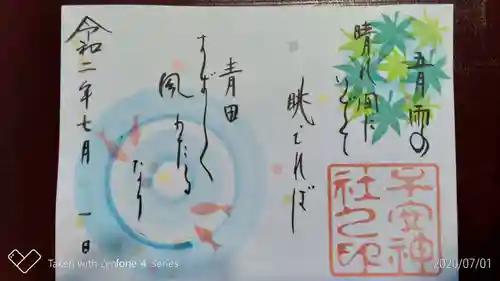 五月雨の
晴れ間に
いでて
眺むれば
青田
すずしく
風わたる
なり
令和二年七月 一日
子安神
社之印
Taken with Zenfone 4 Series
2020/07/01